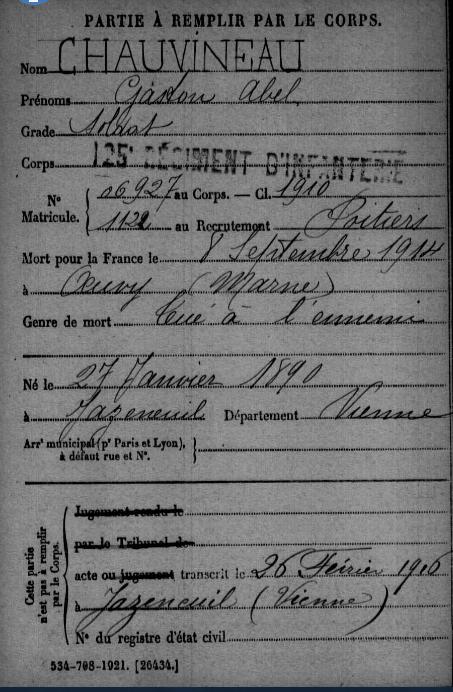 PARTIE À REMPLIR PAR LE CORPS.
Nom CHAUVINEAU
Prénoms Gaston Abel
Grade Soldat
Corps 125e RÉGIMENT D'INFANTERIE
N° Matricule. { 06927 au Corps. — Cl. 1910
1122 au Recrutement Poitiers
Mort pour la France le 8 Septembre 1914
à Œuvy (Marne)
Genre de mort Tué à l'ennemi
Né le 27 Janvier 1890
à Jazeneuil Département Vienne
Arrt municipal (pr Paris et Lyon),
à défaut rue et N°.
Cette partie
n'est pas à remplir
par le Corps.
Jugement rendu le
par le Tribunal de
acte ou jugement transcrit le 26 Février 1916
à Jazeneuil (Vienne)
N° du registre d'état civil
534-708-1921. [26434.]